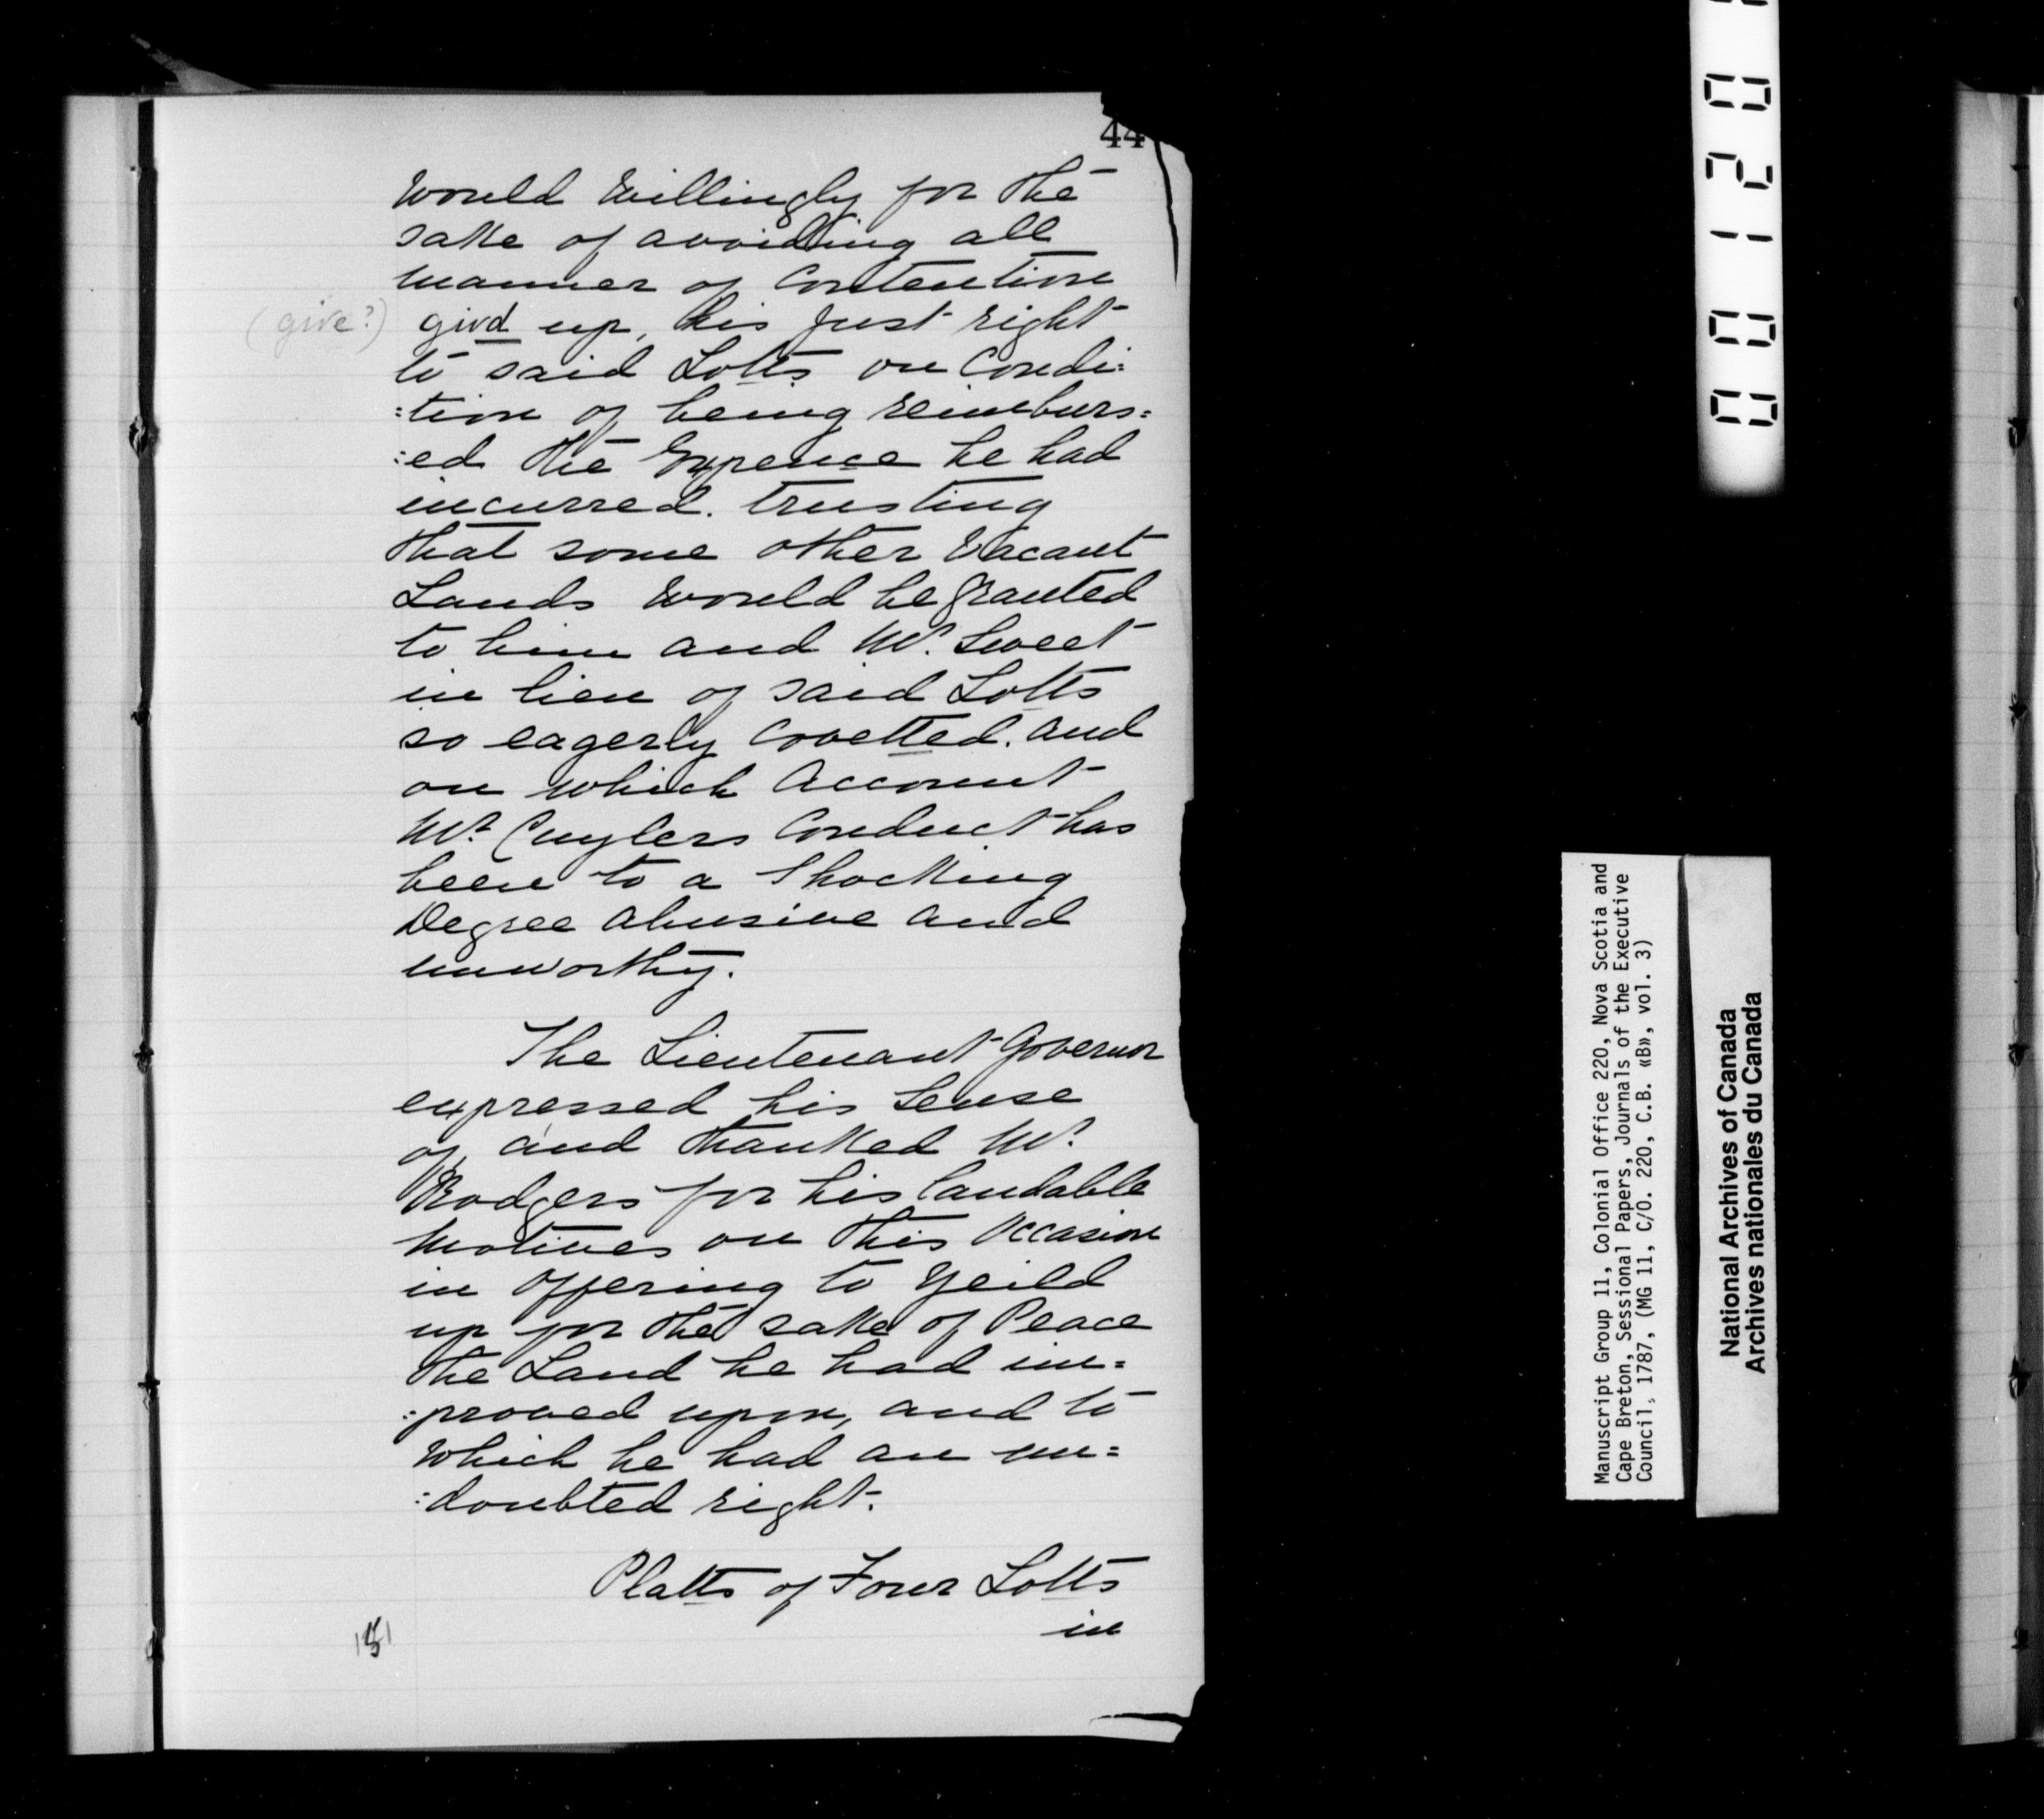 44
would willingly for the
sake of avoiding all
manner of Contention
(give?) givd up, his just right
to said Lotts on Condi:
:tion of being reimburs:
:ed the Expence he had
incurred. trusting
that some other Vacant
Lands would be granted
to him and Mr. Sweet
in lieu of said Lotts
so eagerly Covetted. and
on which Account
Mr. Cuylers Conduct has
been to a Shocking
Degree abusive and
unworthy.
The Lieutenant Governor
expressed his Sense
of, and thanked Mr.
Rodgers for his laudable
Motives on this Occasion
in Offering to Yeild
up for the sake of Peace
the Land he had im=
:proved upon, and to
which he had an un=
:doubted right.
Platts of Four Lotts
in
00120
Manuscript Group 11, Colonial Office 220, Nova Scotia and
Cape Breton, Sessional Papers, Journals of the Executive
Council, 1787, (MG 11, C/O. 220, C.B. «B», vol. 3)
National Archives of Canada
Archives nationales du Canada